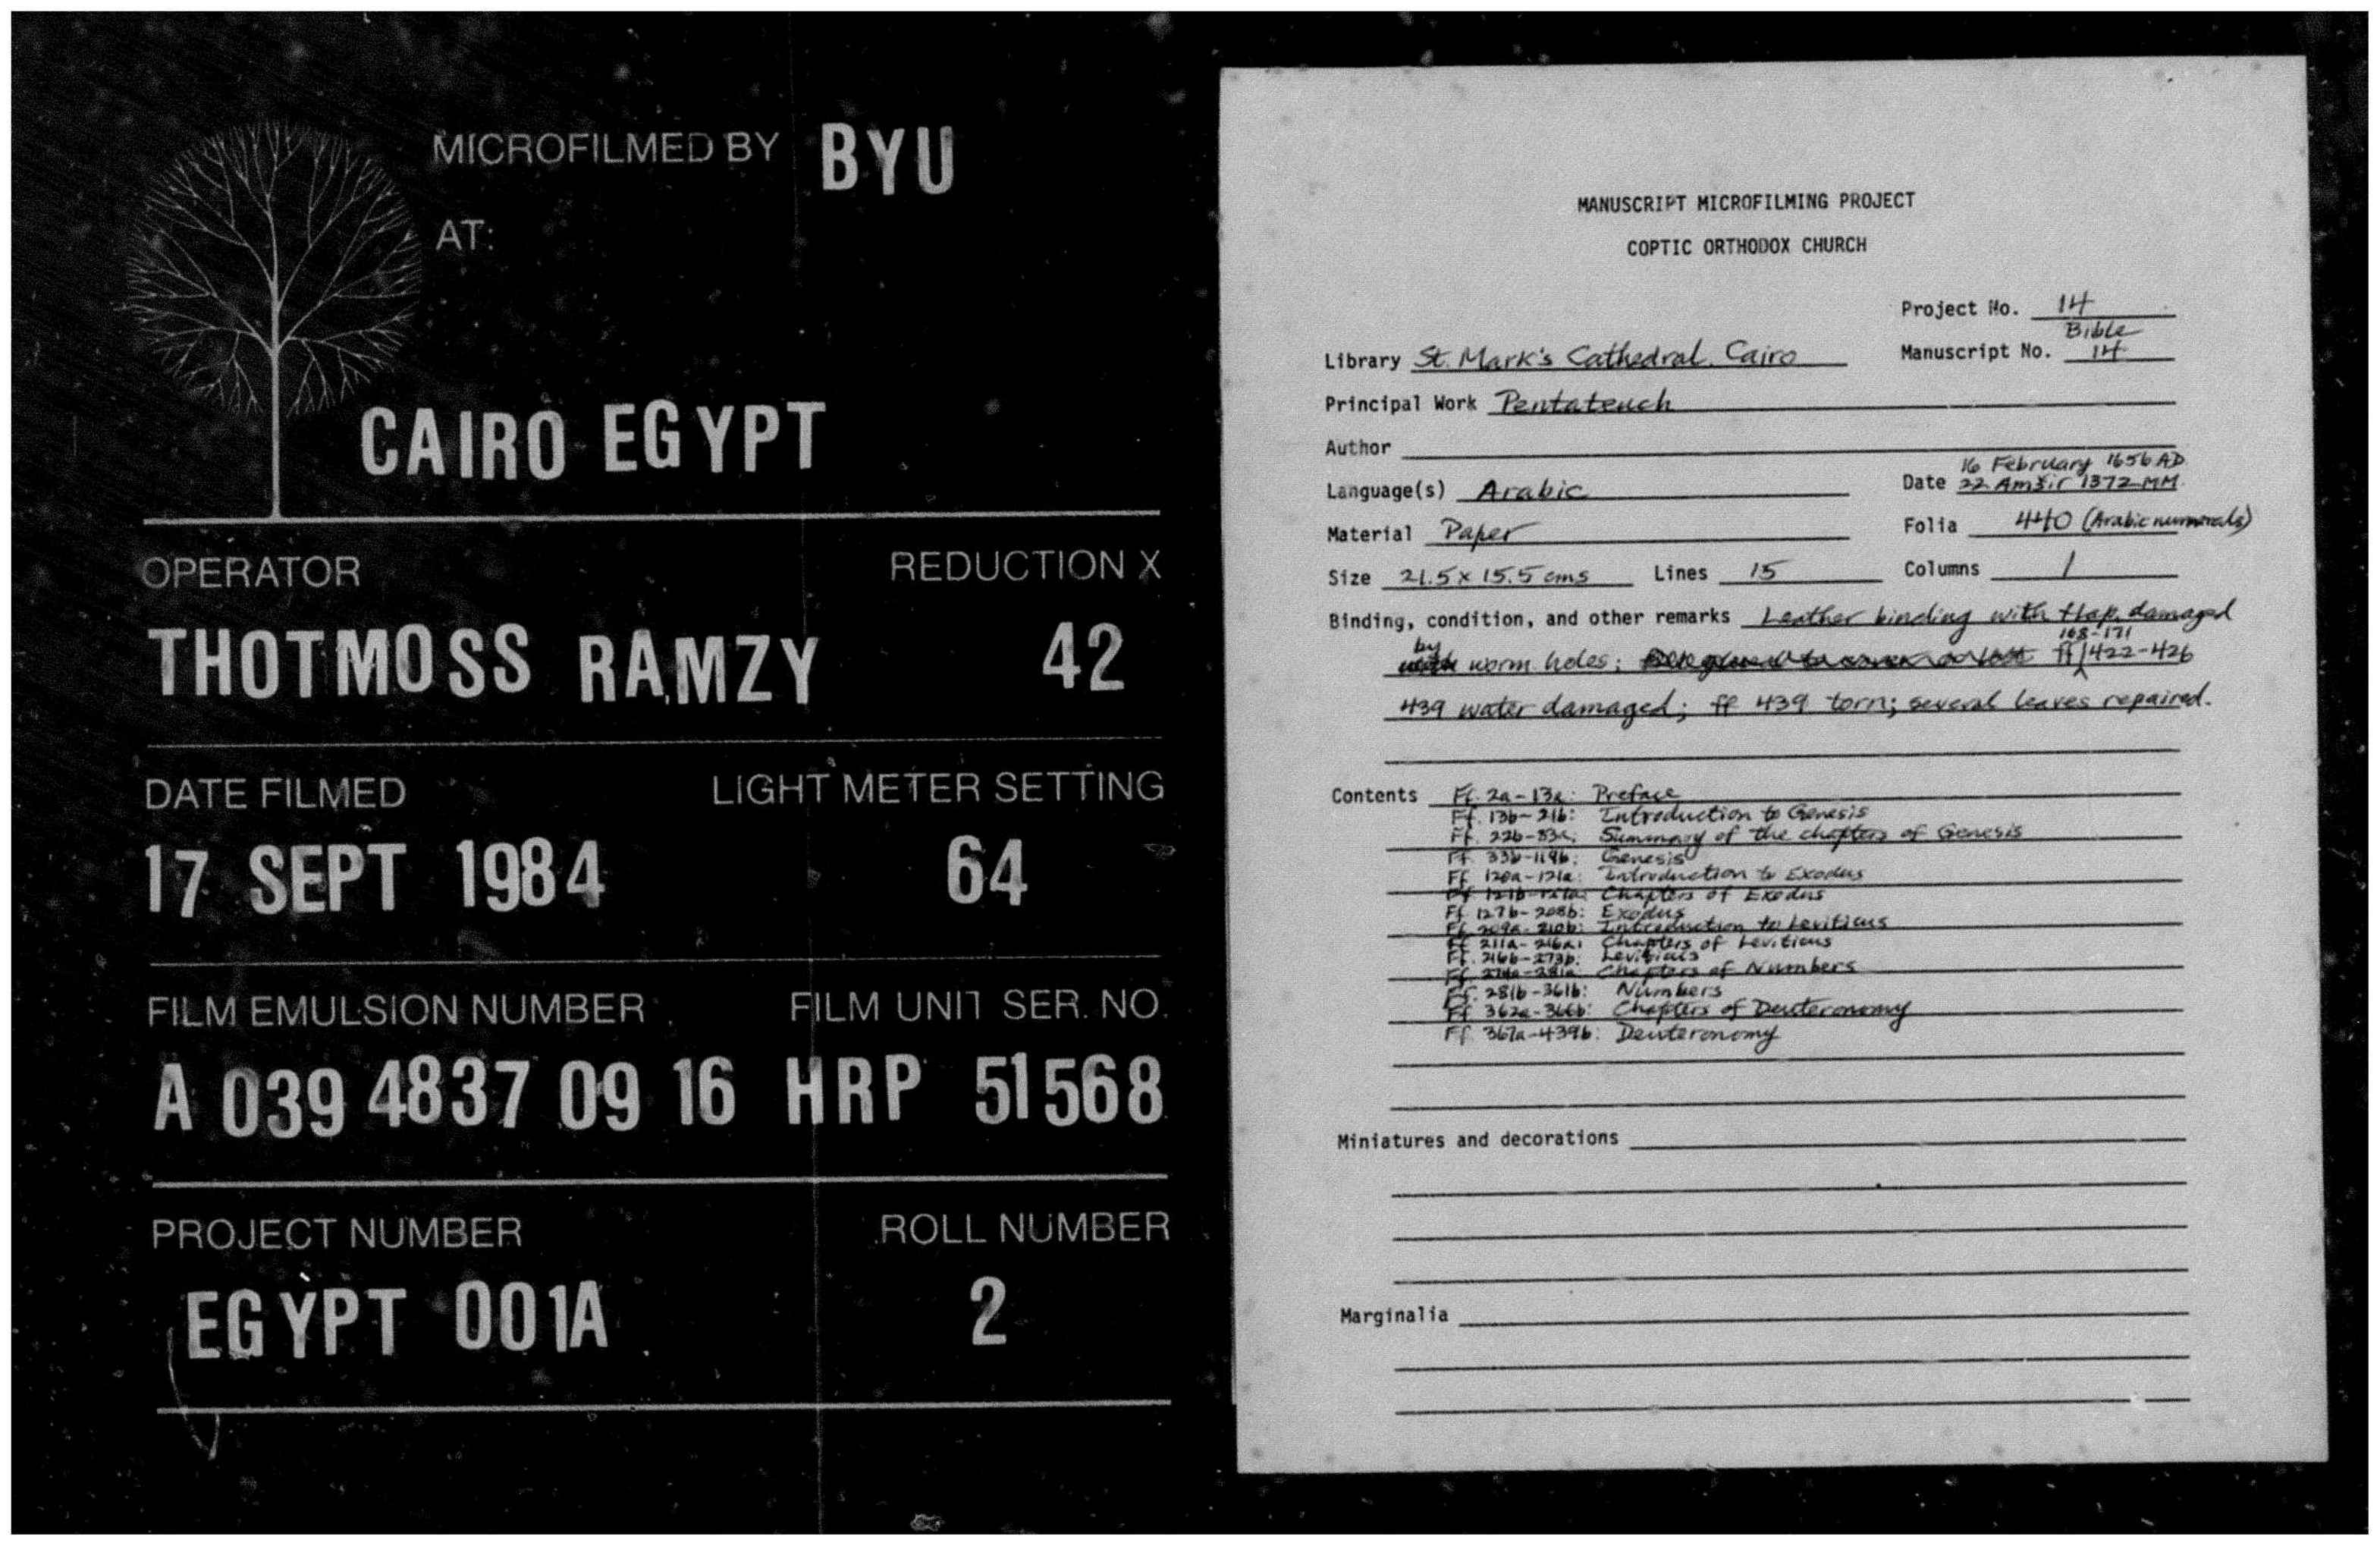 MICROFILMED BY BYU
AT:
CAIRO EGYPT
OPERATOR REDUCTION X
THOTMOSS RAMZY 42
DATE FILMED LIGHT METER SETTING
17 SEPT 1984 64
FILM EMULSION NUMBER FILM UNIT SER. NO.
A 039 4837 09 16 HRP 51568
PROJECT NUMBER ROLL NUMBER
EGYPT 001A 2
MANUSCRIPT MICROFILMING PROJECT
COPTIC ORTHODOX CHURCH
Project No. 14
Bible
Library St. Mark's Cathedral, Cairo Manuscript No. 14
Principal Work Pentateuch
Author
16 February 1656 AD
Language(s) Arabic Date 22 Amšir 1372 MM
Material Paper Folia 440 (Arabic numerals)
Size 21.5 x 15.5 cms Lines 15 Columns 1
Binding, condition, and other remarks Leather binding with flap, damaged
by worm holes; ff 168-171 422-426
439 water damaged; ff 439 torn; several leaves repaired.
Contents Ff. 2a-13a: Preface
Ff. 13b-21b: Introduction to Genesis
Ff. 22b-33a: Summary of the chapters of Genesis
Ff. 33b-119b: Genesis
Ff. 120a-121a: Introduction to Exodus
Ff. 121b-127a: Chapters of Exodus
Ff. 127b-208b: Exodus
Ff. 209a-210b: Introduction to Leviticus
Ff. 211a-216a: Chapters of Leviticus
Ff. 216b-273b: Leviticus
Ff. 274a-281a: Chapters of Numbers
Ff. 281b-361b: Numbers
Ff. 362a-366b: Chapters of Deuteronomy
Ff. 367a-439b: Deuteronomy
Miniatures and decorations
Marginalia